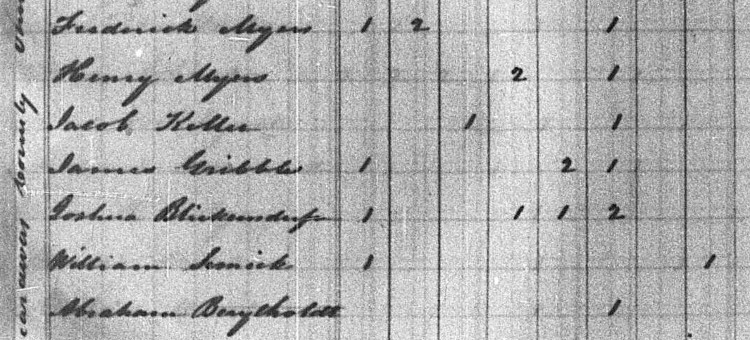 Frederick Myers 1 2 1
Henry Myers 2 1
Jacob Keller 1 1
James Gribble 1 2 1
Joshua Blickensdurfer 1 1 1 2
William 1 1
Abraham 1
County